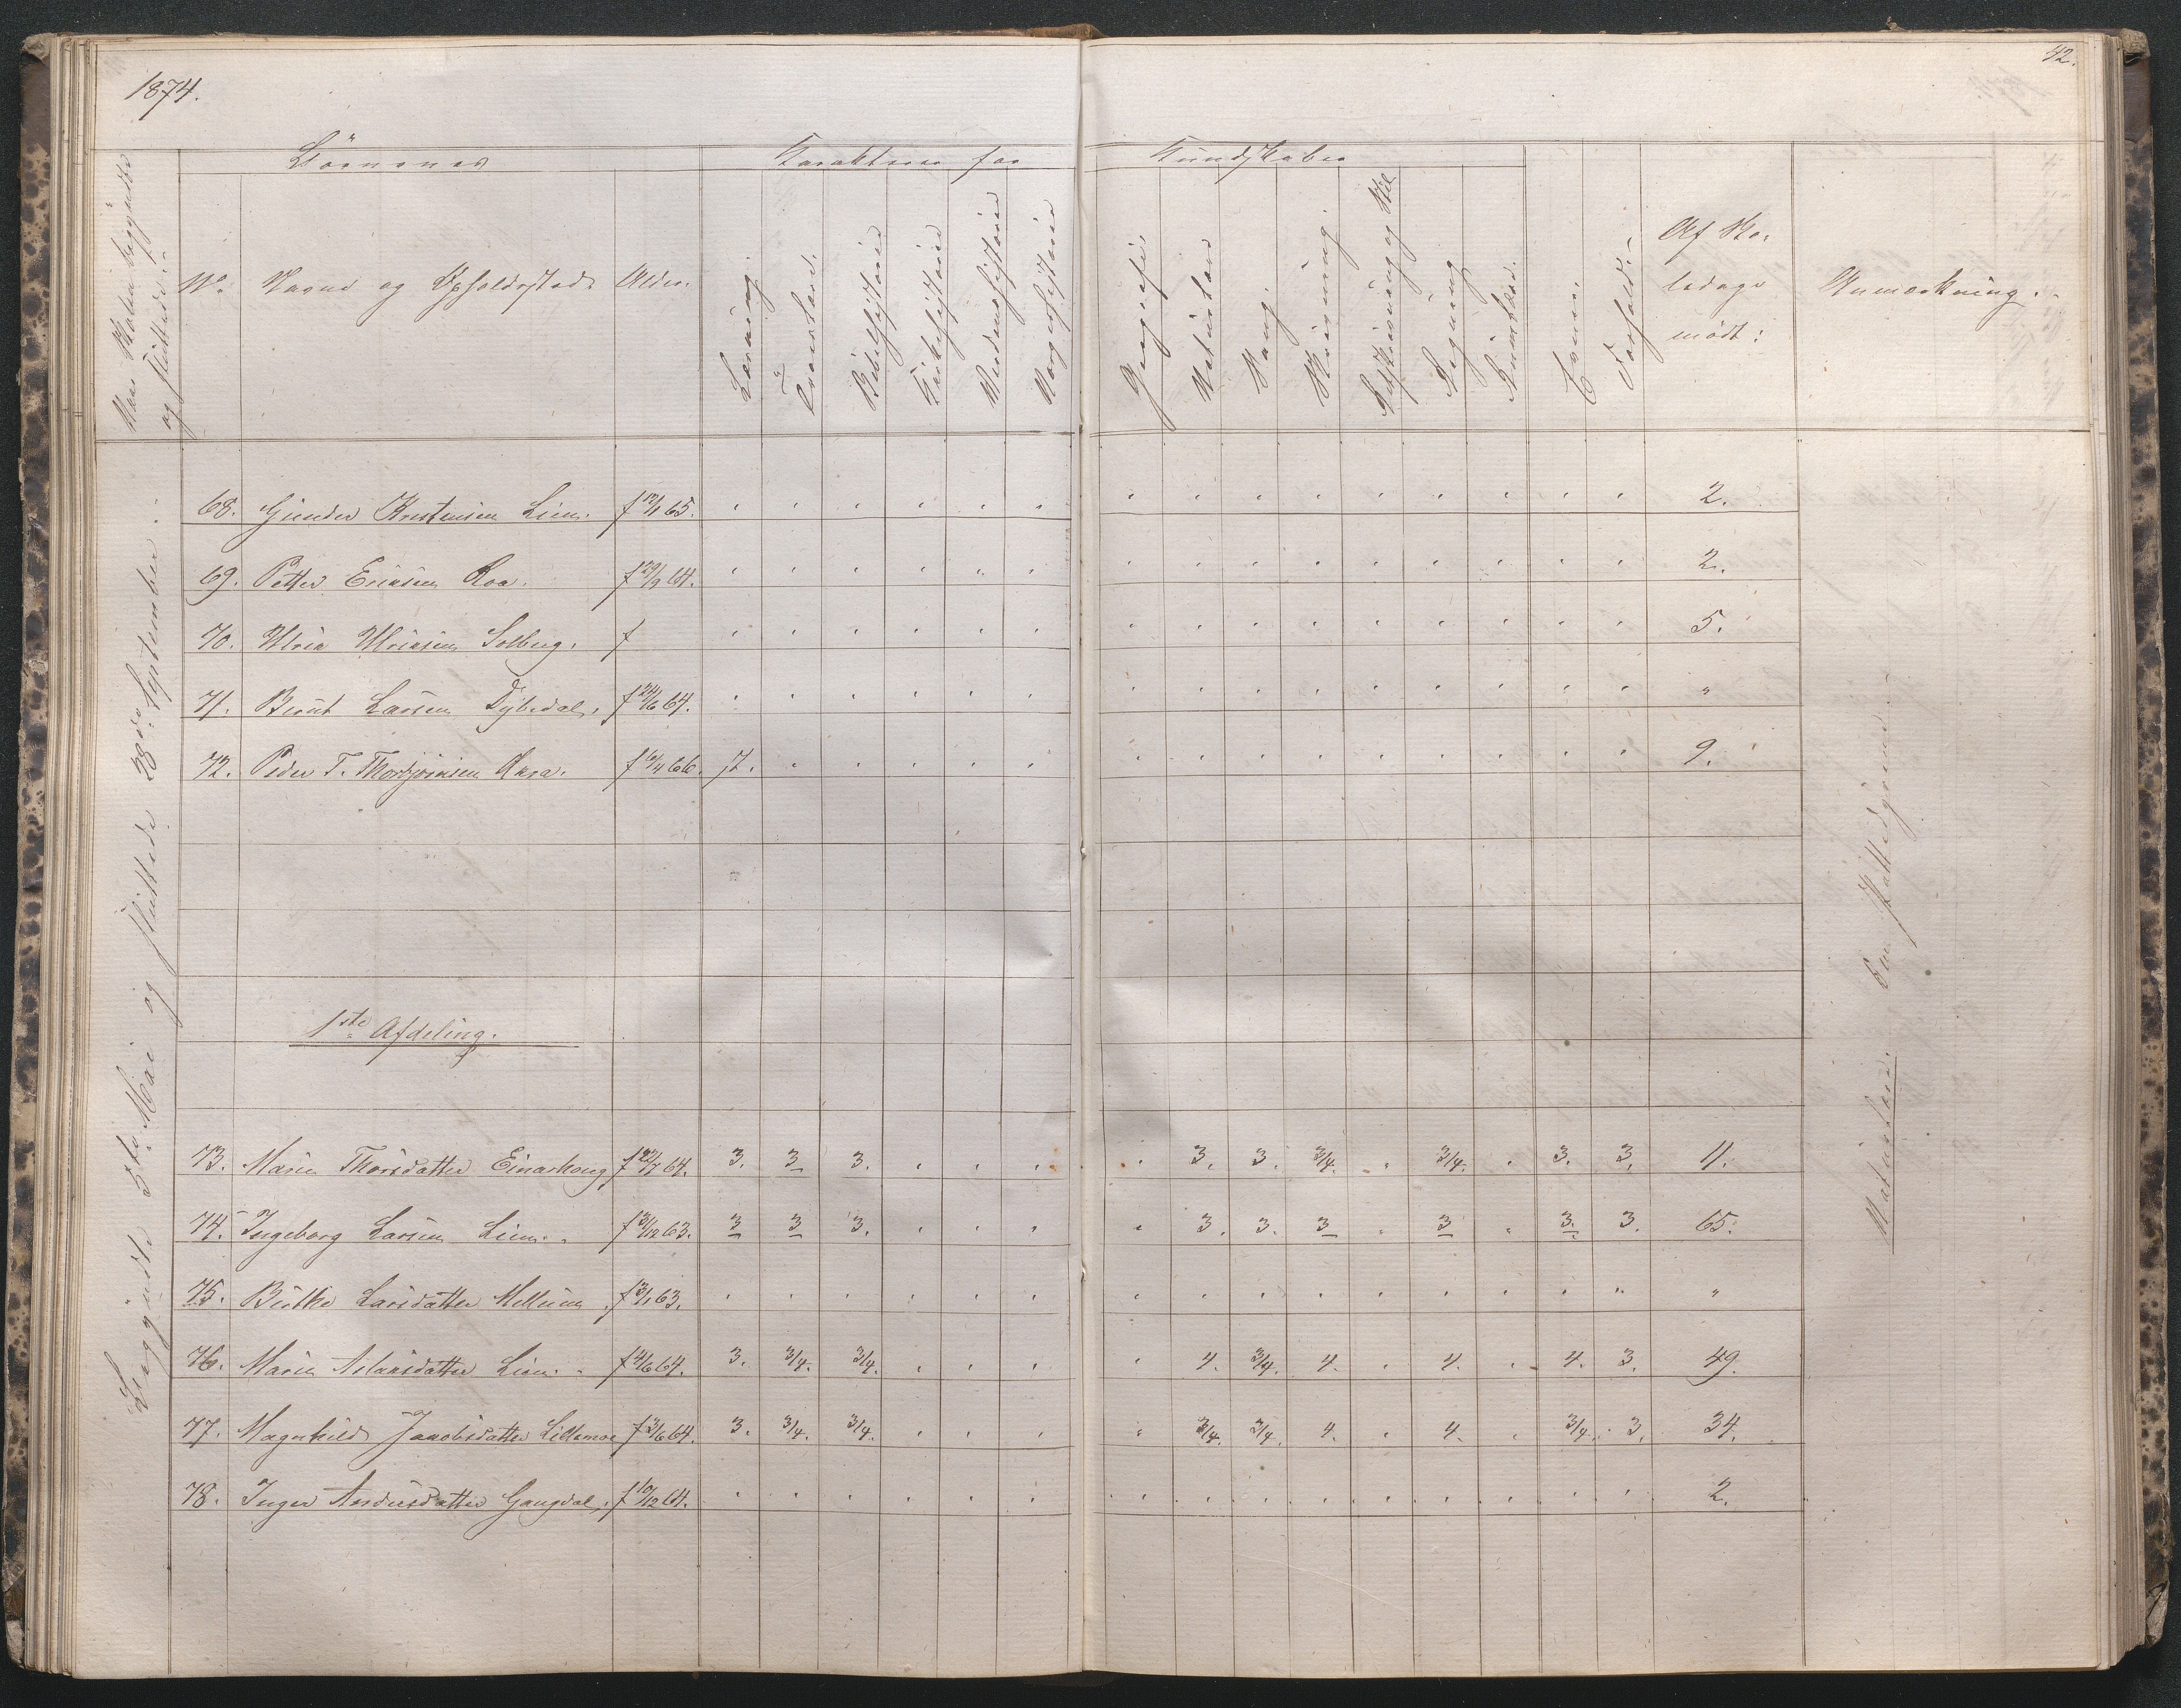 1874.
42.
Börnenes
Karakterer for
Kundskaber
Naar Skolen begyndte
og sluttede:
No
Navne og Opholdssted
Alder.
Læsning.
Troeslære.
Bibelhistorie
Kirkehistorie
Verdenshistorie
Norgeshistorie
Geografi
Naturlære
Sang.
Skrivning.
Retskrivning og Stil
Regning
Evner.
Forhold.
Af Sko-
ledage
mödt:
Anmærkning.
Begyndte 5te Mai og sluttede 28de September.
68. Gunder Knutensen Lien. f 12/1 65. 2.
69. Petter Eriksen Roa. f 29/9 64. 2.
70. Ulrik Ulriksen Solberg. f 5.
71. Berut Larsen Dybedal. f 24/6 64. "
72. Peder T. Thorbjörnsen Aasa. f 6/4 66. 7. 9.
1ste Afdeling.
73. Maren Thorsdatter Einarhaug f 22/7 64. 3. 3 3. 3. 3. 3/4. 3/4. 3. 3. 11.
74. Ingeborg Larsen Lien. f 31/12 63. 3 3 3. 3. 3. 3 3 3. 3. 65.
75. Birthe Larsdatter Mellum f 3/1 63. "
76. Maren Aslaksdatter Lien. f 4/6 64. 3. 3/4. 3/4. 4. 3/4. 4. 4. 4. 3. 49.
77. Magnhild Jacobsdatter Lillemoe f 3/6 64. 3. 3/4. 3/4. 3/4. 3/4. 4. 4. 3/4. 3. 34.
78. Inger Andersdatter Gangdal. f 10/12 64. 2.
Naturlære. Om Pattedyrene.